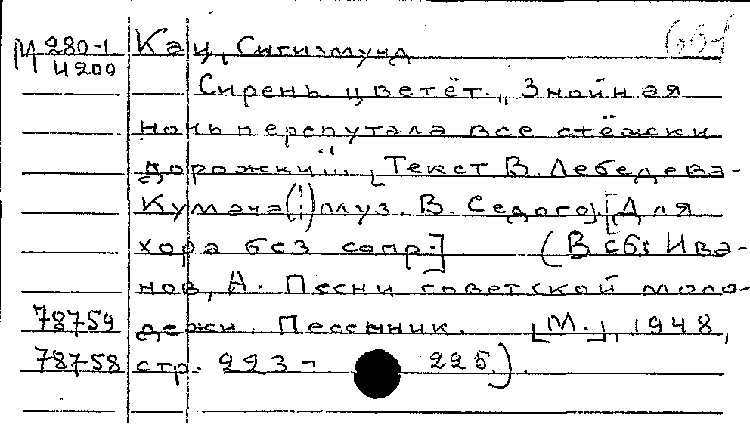 М 280-1 Кац, Сигизмунд
4200
Сирень цветёт. „Знойная
ночь перепутала все стёжки
дорожки"... [Текст В. Лебедева-
Кумача(;) муз. В. Седого]. [Для
хора без сопр.] (В сб: Ива-
нов, А. Песни советской моло-
78759 дежи. Песенник. [М.], 1948,
78758 стр. 223- 225).